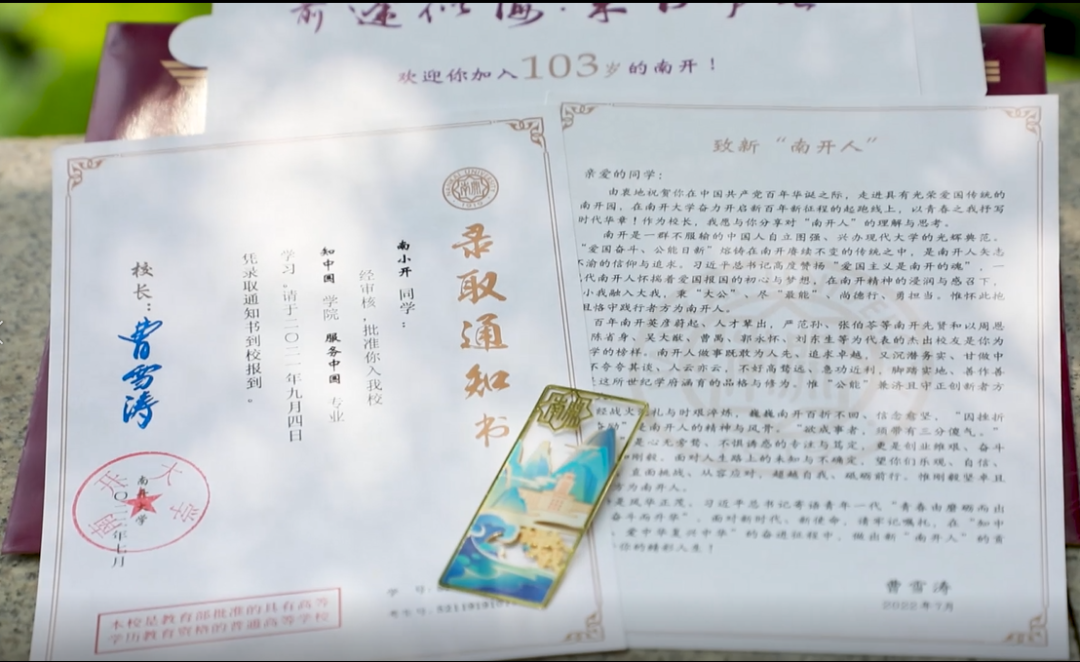 前途似海·来日方长
欢迎你加入103岁的南开！
录取通知书
南小开 同学：
经审核，批准你入我校
知中国 学院 服务中国 专业
学习。请于二〇二一年九月四日
凭录取通知书到校报到。
校长：曹雪涛
南开大学
二〇二一年七月
学 号：
考生号：
本校是教育部批准的具有高等
学历教育资格的普通高等学校
致新“南开人”
亲爱的同学：
由衷地祝贺你在中国共产党百年华诞之际，走进具有光荣爱国传统的
南开园，在南开大学奋力开启新百年新征程的起跑线上，以青春之我抒写
时代华章！作为校长，我愿与你分享对“南开人”的理解与思考。
南开是一群不服输的中国人自立图强、兴办现代大学的光辉典范。
“爱国奋斗、公能日新”熔铸在南开赓续不变的传统之中，是南开人矢志
不渝的信仰与追求。习近平总书记高度赞扬“爱国主义是南开的魂”，一
代南开人怀揣着爱国报国的初心与梦想，在南开精神的浸润与感召下，
小我融入大我，秉“大公”、尽“最能”、尚德行、勇担当。惟怀此抱
且恪守践行者方为南开人。
百年南开英彦蔚起、人才辈出，严范孙、张伯苓等南开先贤和以周恩
陈省身、吴大猷、曹禺、郭永怀、刘东生等为代表的杰出校友是你为
学的榜样。南开人做事既敢为人先、追求卓越，又沉潜务实、甘做中
不夸夸其谈、人云亦云，不好高骛远、急功近利，脚踏实地、善作善
是这所世纪学府涵育的品格与修为。惟“公能”兼济且守正创新者方
经战火洗礼与时艰淬炼，巍巍南开百折不回、信念愈坚，“因挫折
奋励”是南开人的精神与风骨。“欲成事者，须带有三分傻气。”
是心无旁骛、不惧诱惑的专注与笃定，更是创业维艰、奋斗
刚毅。面对人生路上的未知与不确定，望你们乐观、自信、
直面挑战、从容应对，超越自我、砥砺前行。惟刚毅坚卓且
方为南开人。
是风华正茂，习近平总书记寄语青年一代“青春由磨砺而出
奋斗而升华”。面对新时代、新使命，请牢记嘱托，在“知中
、爱中华复兴中华”的奋进征程中，做出新“南开人”的贡
你的精彩人生！
曹雪涛
2022年7月